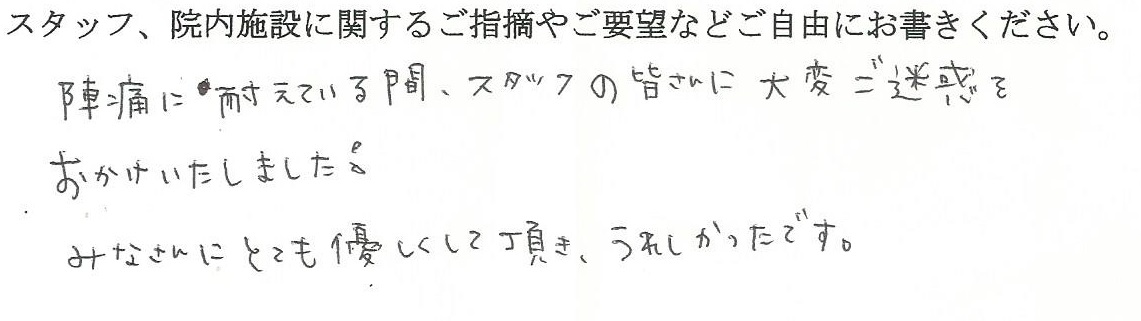 スタッフ、院内施設に関するご指摘やご要望などご自由にお書きください。
陣痛に耐えている間、スタッフの皆さんに大変ご迷惑を
おかけいたしました。
みなさんにとても優しくして頂き、うれしかったです。